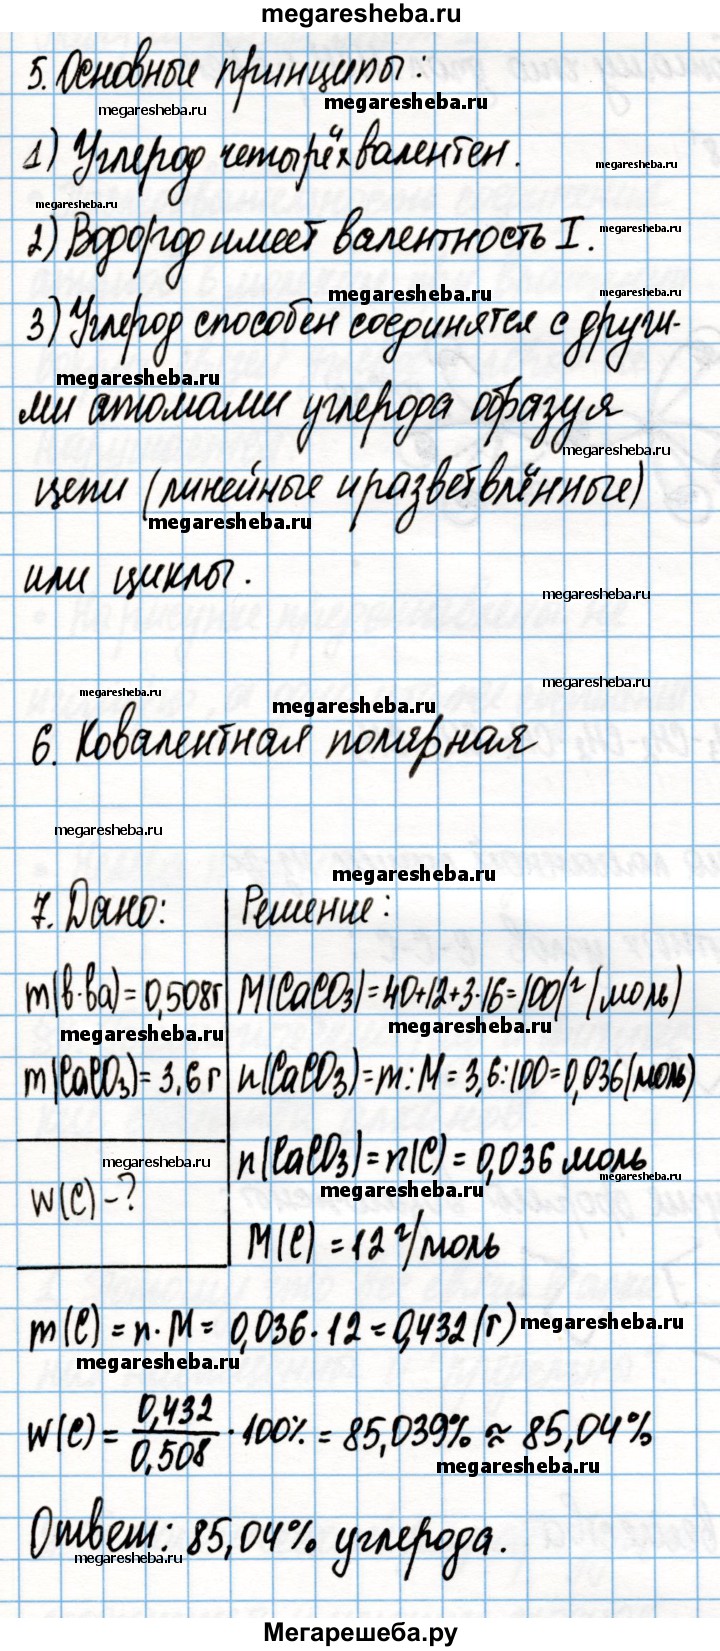 megaresheba.ru
5. Основные принципы:
megaresheba.ru
megaresheba.ru
1) Углерод четырёхвалентен.
megaresheba.ru
megaresheba.ru
2) Водород имеет валентность I.
megaresheba.ru
megaresheba.ru
megaresheba.ru
3) Углерод способен соединятся с други-
megaresheba.ru
ми атомами углерода образуя
megaresheba.ru
цепи (линейные и разветвлённые)
megaresheba.ru
или циклы.
megaresheba.ru
megaresheba.ru
megaresheba.ru
megaresheba.ru
6. Ковалентная полярная
megaresheba.ru
megaresheba.ru
7. Дано:
m(в-ва) = 0,508г
megaresheba.ru
m(CaCO₃) = 3,6 г
megaresheba.ru
w(C) - ?
Решение:
M(CaCO₃) = 40+12+3·16 = 100 (г/моль)
megaresheba.ru
n(CaCO₃) = m:M = 3,6:100 = 0,036 (моль)
n(CaCO₃) = n(C) = 0,036 моль
megaresheba.ru
megaresheba.ru
M(C) = 12 г/моль
m(C) = n·M = 0,036·12 = 0,432 (г)
megaresheba.ru
megaresheba.ru
w(C) = 0,432/0,508 · 100% = 85,039% ≈ 85,04%
megaresheba.ru
Ответ: 85,04% углерода.
megaresheba.ru
Мегарешеба.ру